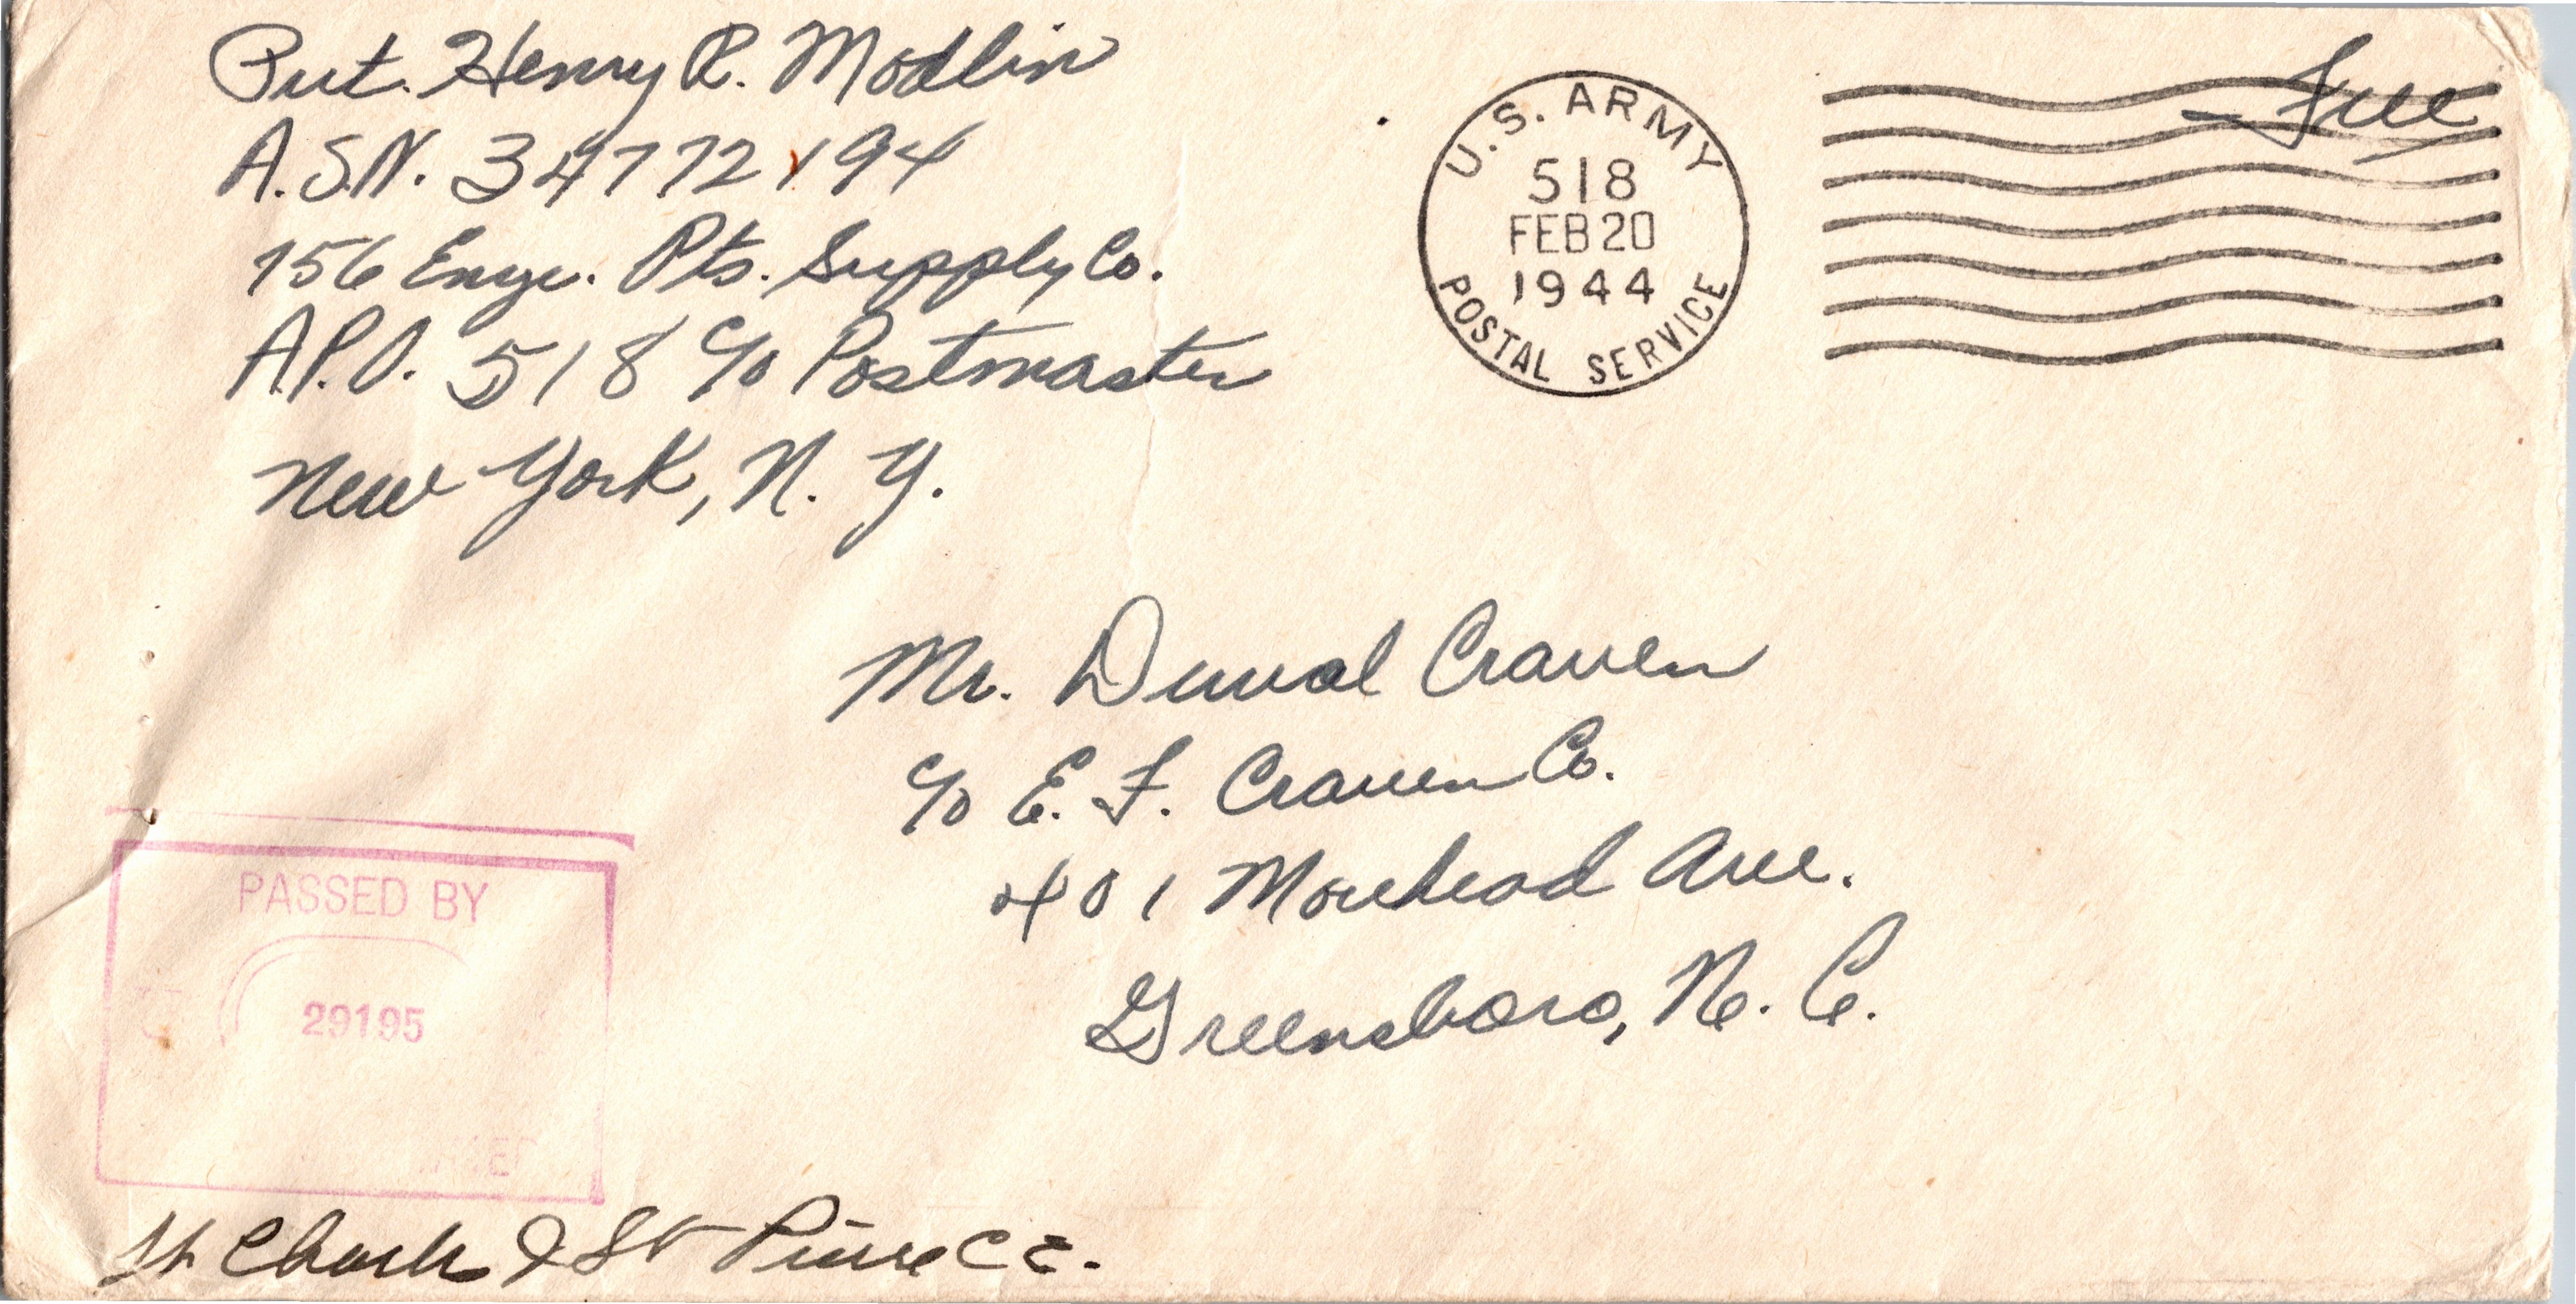 Pvt. Henry R. Modlin
A.S.N. 34772194
756 Engr. Pts. Supply Co.
A.P.O. 518 c/o Postmaster
New York, N. Y.
U.S. ARMY
518
FEB 20
1944
POSTAL SERVICE
Free
Mr. Duval Craven
c/o E. F. Craven Co.
401 Morehead Ave.
Greensboro, N. C.
PASSED BY
29195